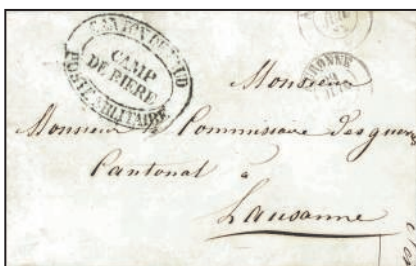 CANTON DE VAUD
CAMP
DE BIERE
POSTE MILITAIRE
AUBONNE
Monsieur
Monsieur le Commissaire des guerres
Cantonal à
Lausanne